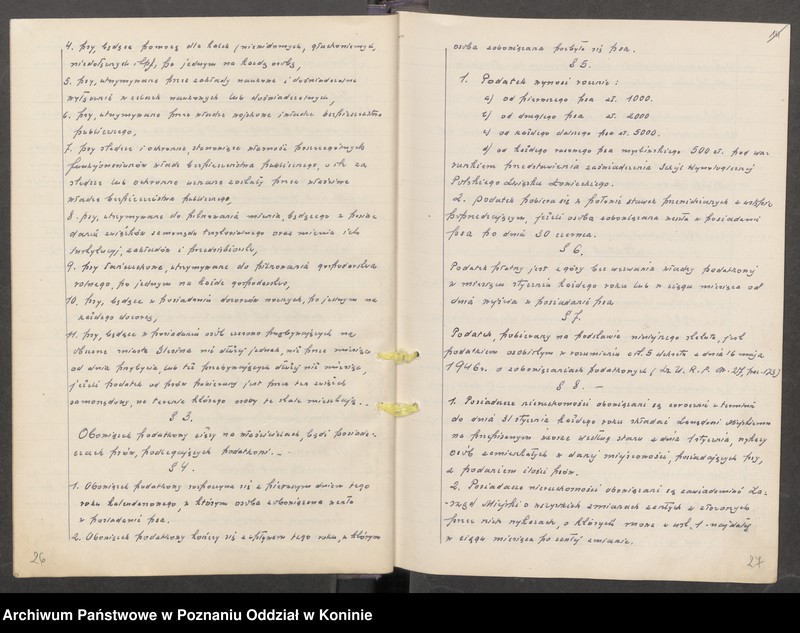 4. psy, będące pomocą dla kalek (niewidomych, głuchoniemych,
niedołężnych itp), po jednym na każdą osobę,
5. psy, utrzymywane przez zakłady naukowe i doświadczalne
wyłącznie w celach naukowych lub doświadczalnych,
6. psy, utrzymywane przez władze wojskowe i władze bezpieczeństwa
publicznego,
7. psy śledcze i ochronne, stanowiące własność poszczególnych
funkcjonariuszów władz bezpieczeństwa publicznego, o ile za
śledcze lub ochronne uznane zostały przez właściwe
władze bezpieczeństwa publicznego,
8. psy, utrzymywane do pilnowania mienia, będącego w posia-
daniu związków samorządu terytorialnego oraz mienia ich
instytucyj, zakładów i przedsiębiorstw,
9. psy łańcuchowe, utrzymywane do pilnowania gospodarstwa
rolnego, po jednym na każde gospodarstwo,
10. psy, będące w posiadaniu dozorców nocnych, po jednym na
każdego dozorcę,
11. psy, będące w posiadaniu osób czasowo przebywających na
obszarze miasta Ślesina nie dłużej jednak, niż przez miesiąc
od dnia przybycia lub też przebywających dłużej niż miesiąc,
jeżeli podatek od psów pobierany jest przez ten związek
samorządowy, na terenie którego osoby te stale mieszkają. -
§ 3.
Obowiązek podatkowy ciąży na właścicielach, bądź posiada-
czach psów, podlegających podatkowi. -
§ 4.
1. Obowiązek podatkowy rozpoczyna się z pierwszym dniem tego
roku kalendarzowego, w którym osoba zobowiązana weszła
w posiadanie psa.
2. Obowiązek podatkowy kończy się z upływem tego roku, w którym
26
osoba zobowiązana pozbyła się psa.
§ 5.
1. Podatek wynosi rocznie:
a) od pierwszego psa zł. 1000.
b) od drugiego psa zł. 2000
c) od każdego dalszego psa zł. 5000.
d) od każdego rasowego psa myśliwskiego 500 zł. pod wa-
runkiem przedstawienia zaświadczenia Sekcji Kynologicznej
Polskiego Związku Łowieckiego.
2. Podatek pobiera się w połowie stawek przewidzianych w ustępie
poprzedzającym, jeżeli osoba zobowiązana weszła w posiadanie
psa po dniu 30 czerwca.
§ 6.
Podatek płatny jest z góry bez wezwania władzy podatkowej
w miesiącu styczniu każdego roku lub w ciągu miesiąca od
dnia wejścia w posiadanie psa
§ 7.
Podatek, pobierany na podstawie niniejszego statutu, jest
podatkiem osobistym w rozumieniu art. 5 dekretu z dnia 16 maja
1946 r. o zobowiązaniach podatkowych (Dz. U. R. P. Nr. 27, poz. 173)
§ 8. -
1. Posiadacze nieruchomości obowiązani są corocznie w terminie
do dnia 31 stycznia każdego roku składać Zarządowi Miejskiemu
na przepisanym wzorze według stanu z dnia 1 stycznia, wykazy
osób zamieszkałych w danej miejscowości, posiadających psy,
z podaniem ilości psów.
2. Posiadacze nieruchomości obowiązani są zawiadamiać Za-
-rząd Miejski o wszystkich zmianach zaszłych w złożonych
przez nich wykazach, o których mowa w ust. 1 - najdalej
w ciągu miesiąca po zaszłej zmianie.
27
Archiwum Państwowe w Poznaniu Oddział w Koninie